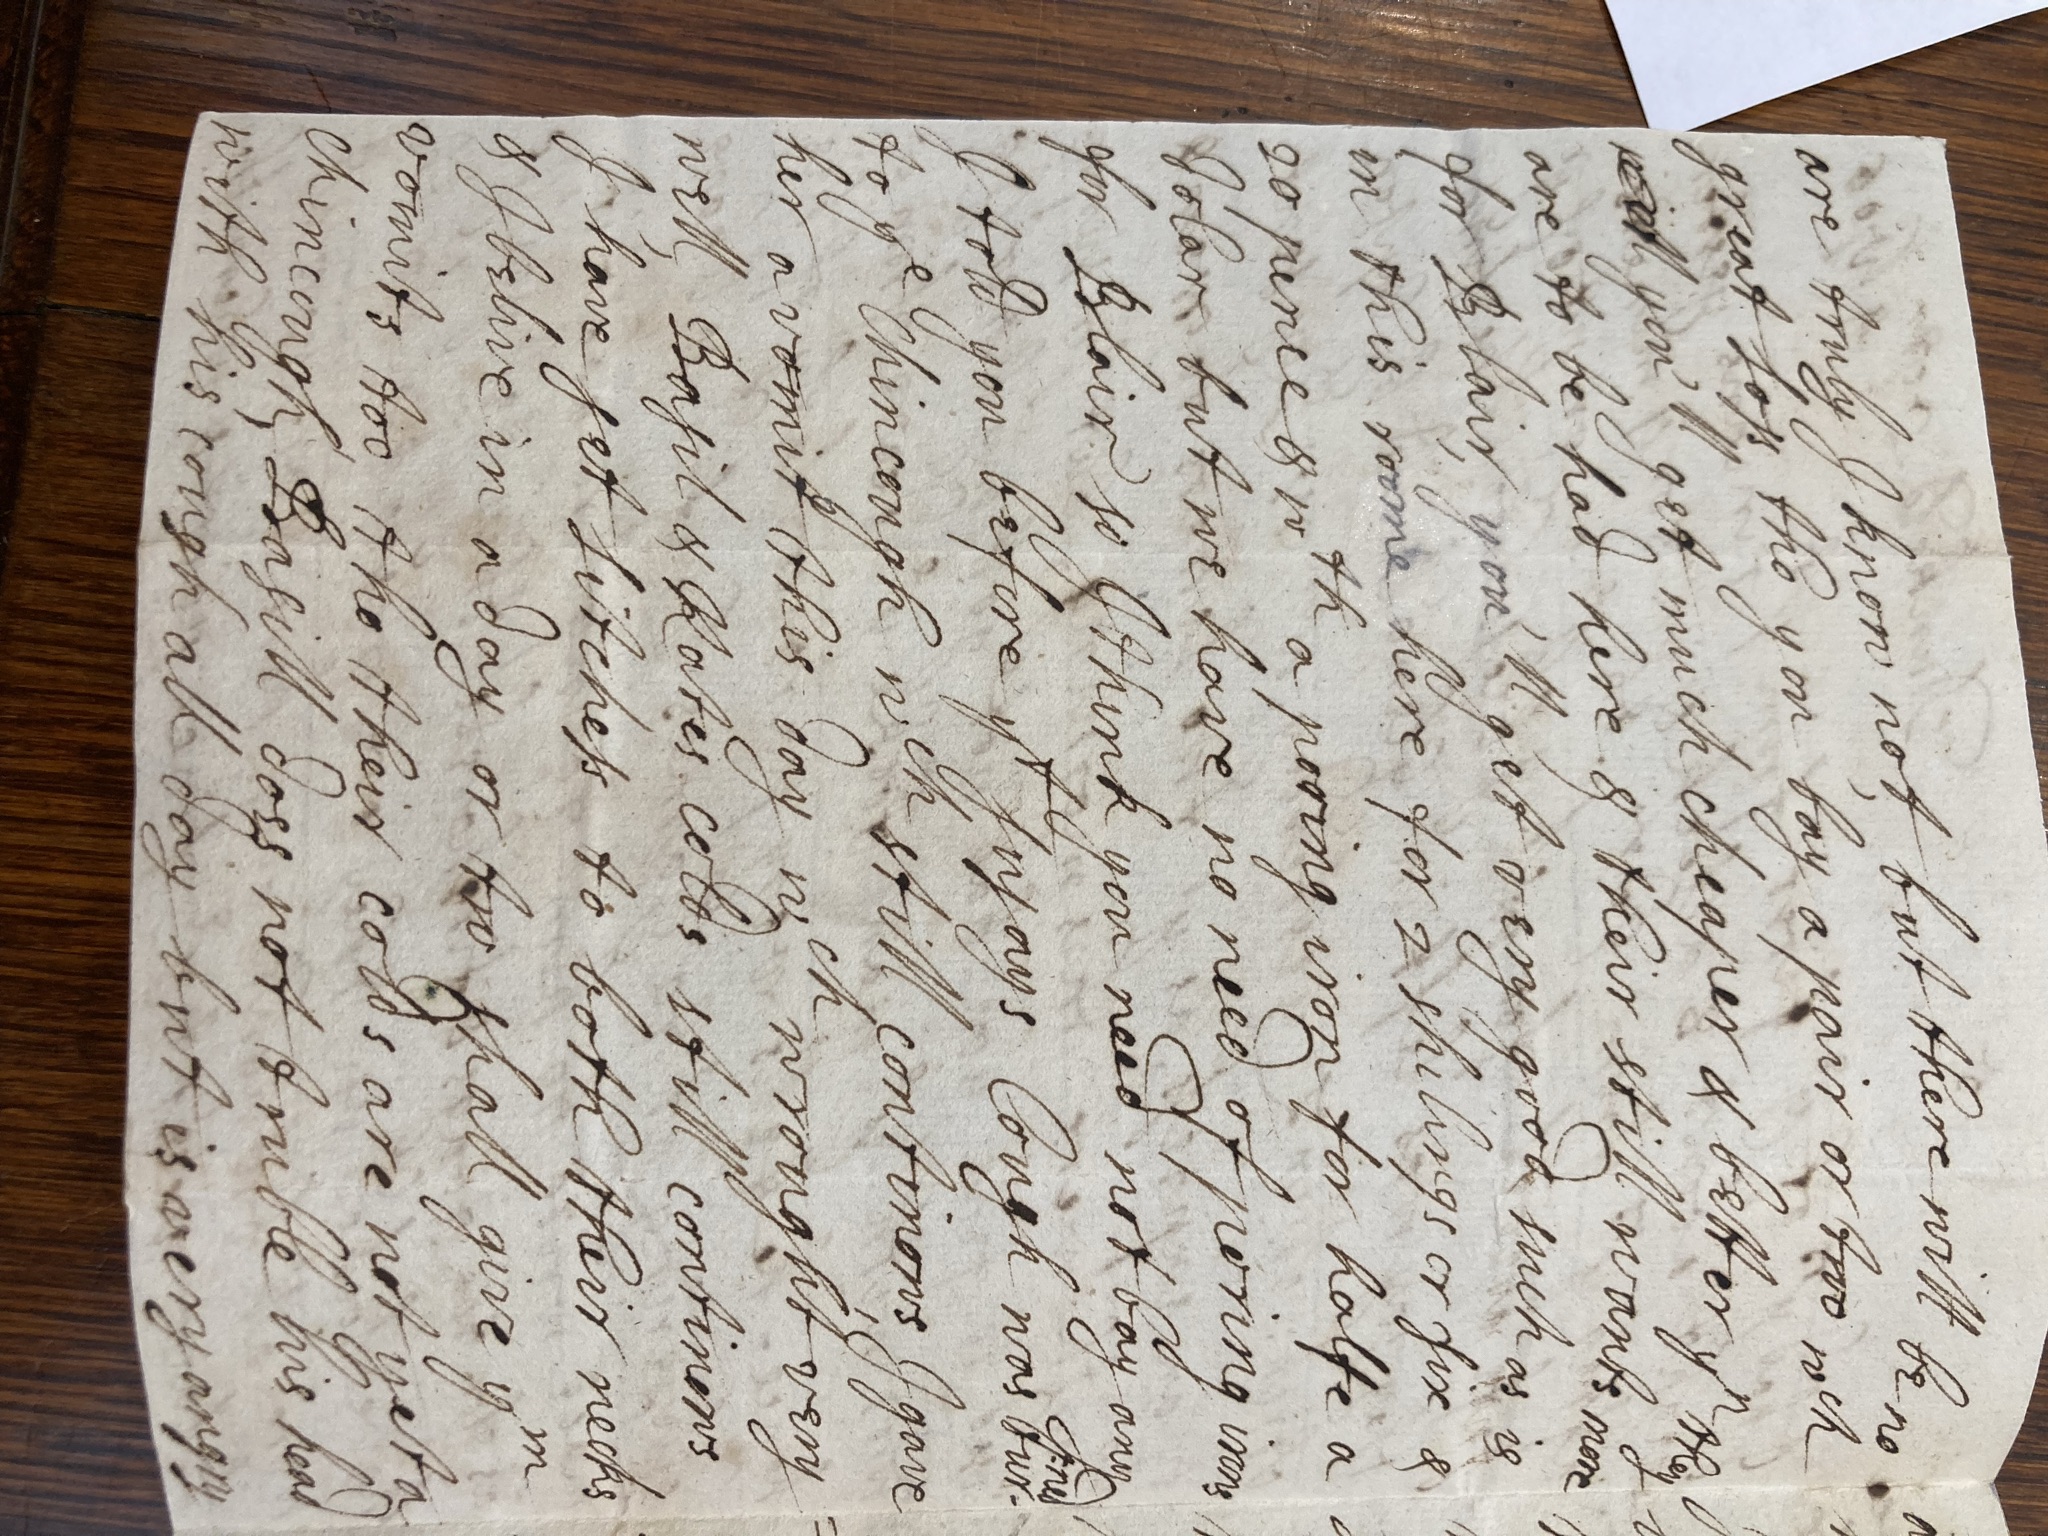 are truly I know not, but there will be no
great loss tho you bay a pair or two wch
you'll get much cheaper & better yn they
are to be had here & their still wants more
for Blair, you'll get very good such as is
in this roome here for 2 shilings or six &
20 pence & wth a poring iron for halfe a
dolar but we have no need of poring irons
for Blair so I think you need not bay any
I told you before yt Susays Cough was tur-ned
to ye Chincough wch still continows, I gave
her a vomit this day wch wrought very
well, Basil & Kates colds still continows
I have set sitchess to both their necks
& I belive in a day or two shall give ym
vomits too, tho their colds are not yet a
Chincough, Basill does not truble his head
with his cough all day but is very angry